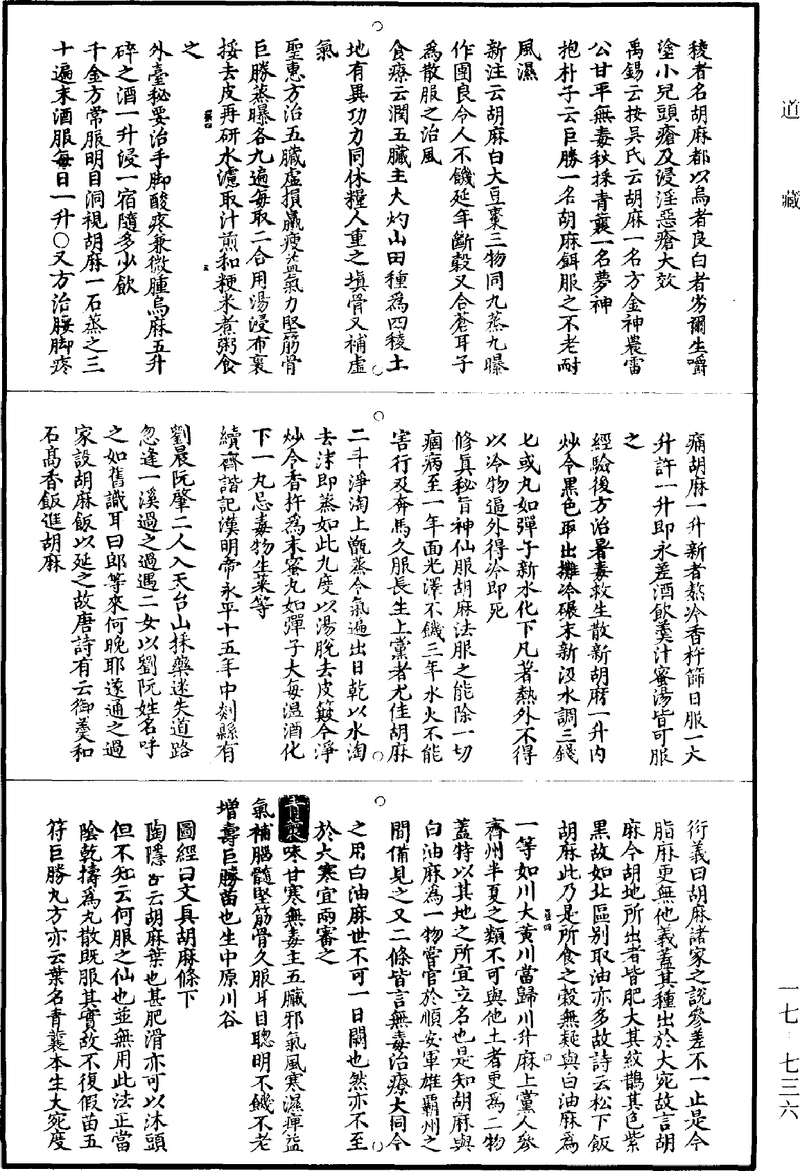 道藏
稜者名胡麻都以烏者良白者劣爾生嚼
塗小兒頭瘡及浸淫惡瘡大效
禹錫云按吳氏云胡麻一名方金神農雷
公甘平無毒秋採青蘘一名夢神
抱朴子云巨勝一名胡麻餌服之不老耐
風濕
新注云胡麻白大豆棗三物同九蒸九曝
作團良令人不饑延年斷穀又合蒼耳子
為散服之治風
食療云潤五臟主火灼山田種為四稜土
地有異功力同休糧人重之填骨又補虛
氣
聖惠方治五臟虛損羸瘦益氣力堅筋骨
巨勝蒸曝各九遍每取二合用湯浸布裹
挼去皮再研水濾取汁煎和粳米煮粥食
之
外臺秘要治手脚酸疼兼微腫烏麻五升
碎之酒一升浸一宿隨多少飲
千金方常服明目洞視胡麻一石蒸之三
十遍末酒服每日一升○又方治腰脚疼
痛胡麻一升新者熬冷香杵篩日服一大
升許一升即永差酒飲羹汁蜜湯皆可服
之
經驗後方治暑毒救生散新胡麻一升內
炒令黑色取出攤冷碾末新汲水調三錢
匕或丸如彈子新水化下凡著熱外不得
以冷物逼外得冷即死
修真秘旨神仙服胡麻法服之能除一切
痼病至一年面光澤不饑三年水火不能
害行及奔馬久服長生上黨者尤佳胡麻
二斗淨淘上甑蒸令氣遍出日乾以水淘
去沫即蒸如此九度以湯脫去皮簸令淨
炒令香杵為末蜜丸如彈子大每温酒化
下一丸忌毒物生菜等
續齊諧記漢明帝永平十五年中剡縣有
劉晨阮肇二人入天台山採藥迷失道路
忽逢一溪過之過遇二女以劉阮姓名呼
之如舊識耳曰郎等來何晚耶遂通之過
家設胡麻飯以延之故唐詩有云御羹和
石髙香飯進胡麻
衍義曰胡麻諸家之說參差不一止是今
脂麻更無他義蓋其種出於大宛故言胡
麻今胡地所出者皆肥大其紋鵲其色紫
黑故如此區別取油亦多故詩云松下飯
胡麻此乃是所食之穀無疑與白油麻為
一等如川大黃川當歸川升麻上黨人參
齊州半夏之類不可與他土者更為二物
蓋特以其地之所宜立名也是知胡麻與
白油麻為一物嘗官於順安軍雄霸州之
間備見之又二條皆言無毒治療大同今
之用白油麻世不可一日闕也然亦不至
於大寒宜兩審之
青蘘味甘寒無毒主五臟邪氣風寒濕痹益
氣補腦髓堅筋骨久服耳目聰明不饑不老
增壽巨勝苗也生中原川谷
圖經曰文具胡麻條下
陶隱居云胡麻葉也甚肥滑亦可以沐頭
但不知云何服之仙也並無用此法正當
陰乾擣為丸散既服其實故不復假苗五
符巨勝丸方亦云葉名青蘘本生大宛度
一七·七三六